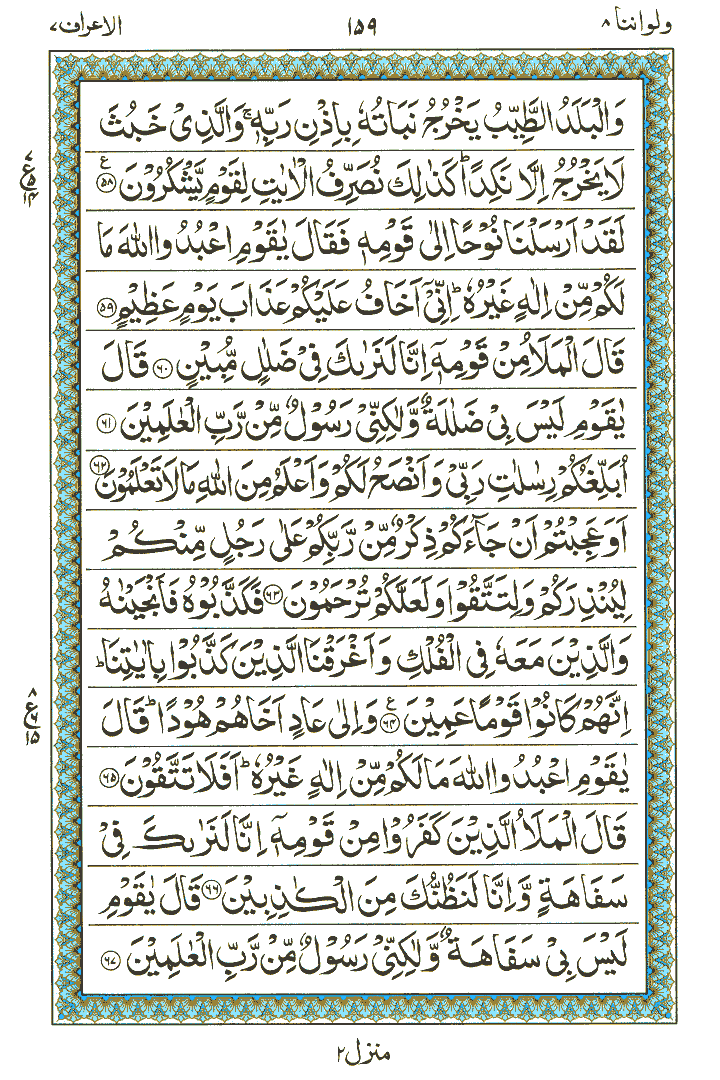 ولواننا ٨ ١٥٩ الاعراف ٧
وَالْبَلَدُ الطَّيِّبُ يَخْرُجُ نَبَاتُهٗ بِاِذْنِ رَبِّهٖ ۚ وَالَّذِىْ خَبُثَ
لَا يَخْرُجُ اِلَّا نَكِدًا ؕ كَذٰلِكَ نُصَرِّفُ الْاٰيٰتِ لِقَوْمٍ يَّشْكُرُوْنَ ﴿٥٨﴾ ع
٧ ع ٥ ١٤
لَقَدْ اَرْسَلْنَا نُوْحًا اِلٰى قَوْمِهٖ فَقَالَ يٰقَوْمِ اعْبُدُوا اللّٰهَ مَا
لَكُمْ مِّنْ اِلٰهٍ غَيْرُهٗ ؕ اِنِّىْۤ اَخَافُ عَلَيْكُمْ عَذَابَ يَوْمٍ عَظِيْمٍ ﴿٥٩﴾
قَالَ الْمَلَاُ مِنْ قَوْمِهٖۤ اِنَّا لَنَرٰىكَ فِىْ ضَلٰلٍ مُّبِيْنٍ ﴿٦٠﴾ قَالَ
يٰقَوْمِ لَيْسَ بِىْ ضَلٰلَةٌ وَّلٰكِنِّىْ رَسُوْلٌ مِّنْ رَّبِّ الْعٰلَمِيْنَ ﴿٦١﴾
اُبَلِّغُكُمْ رِسٰلٰتِ رَبِّىْ وَاَنْصَحُ لَكُمْ وَاَعْلَمُ مِنَ اللّٰهِ مَا لَا تَعْلَمُوْنَ ﴿٦٢﴾
اَوَعَجِبْتُمْ اَنْ جَآءَكُمْ ذِكْرٌ مِّنْ رَّبِّكُمْ عَلٰى رَجُلٍ مِّنْكُمْ
لِيُنْذِرَكُمْ وَلِتَتَّقُوْا وَلَعَلَّكُمْ تُرْحَمُوْنَ ﴿٦٣﴾ فَكَذَّبُوْهُ فَاَنْجَيْنٰهُ
وَالَّذِيْنَ مَعَهٗ فِى الْفُلْكِ وَاَغْرَقْنَا الَّذِيْنَ كَذَّبُوْا بِاٰيٰتِنَا ؕ
اِنَّهُمْ كَانُوْا قَوْمًا عَمِيْنَ ﴿٦٤﴾ ع وَاِلٰى عَادٍ اَخَاهُمْ هُوْدًا ؕ قَالَ
٨ ع ٦ ١٥
يٰقَوْمِ اعْبُدُوا اللّٰهَ مَا لَكُمْ مِّنْ اِلٰهٍ غَيْرُهٗ ؕ اَفَلَا تَتَّقُوْنَ ﴿٦٥﴾
قَالَ الْمَلَاُ الَّذِيْنَ كَفَرُوْا مِنْ قَوْمِهٖۤ اِنَّا لَنَرٰىكَ فِىْ
سَفَاهَةٍ وَّاِنَّا لَنَظُنُّكَ مِنَ الْكٰذِبِيْنَ ﴿٦٦﴾ قَالَ يٰقَوْمِ
لَيْسَ بِىْ سَفَاهَةٌ وَّلٰكِنِّىْ رَسُوْلٌ مِّنْ رَّبِّ الْعٰلَمِيْنَ ﴿٦٧﴾
منزل ٢